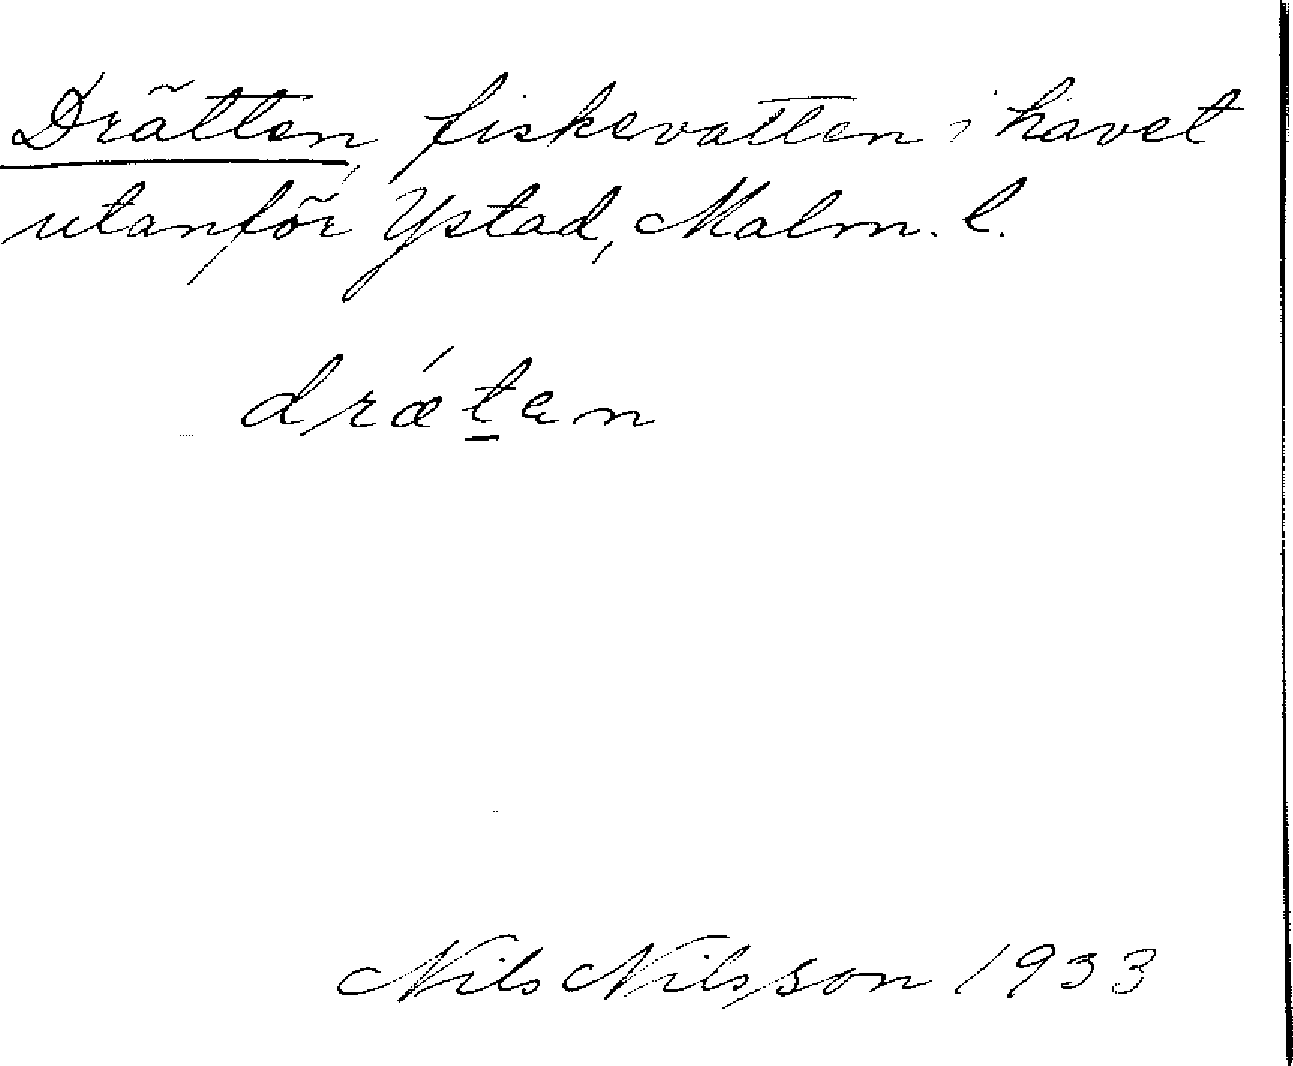 Drätten, fiskevatten i havet
utanför Ystad, Malm. l.
drǽt̲en
Nils Nilsson 1933